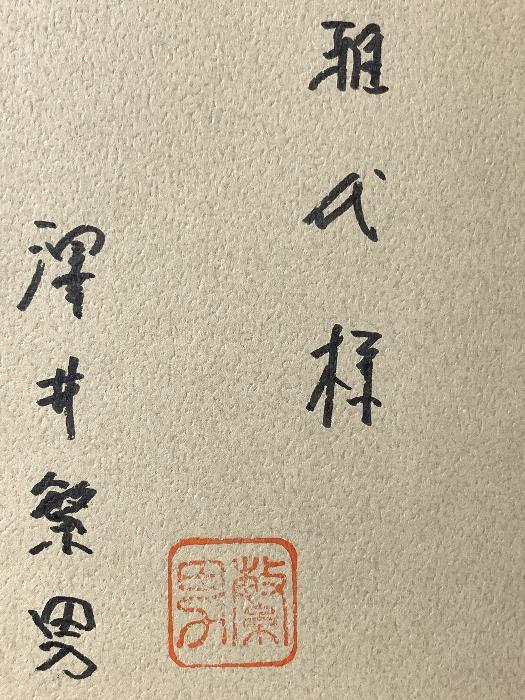 雅代様
澤井繁男
繁男